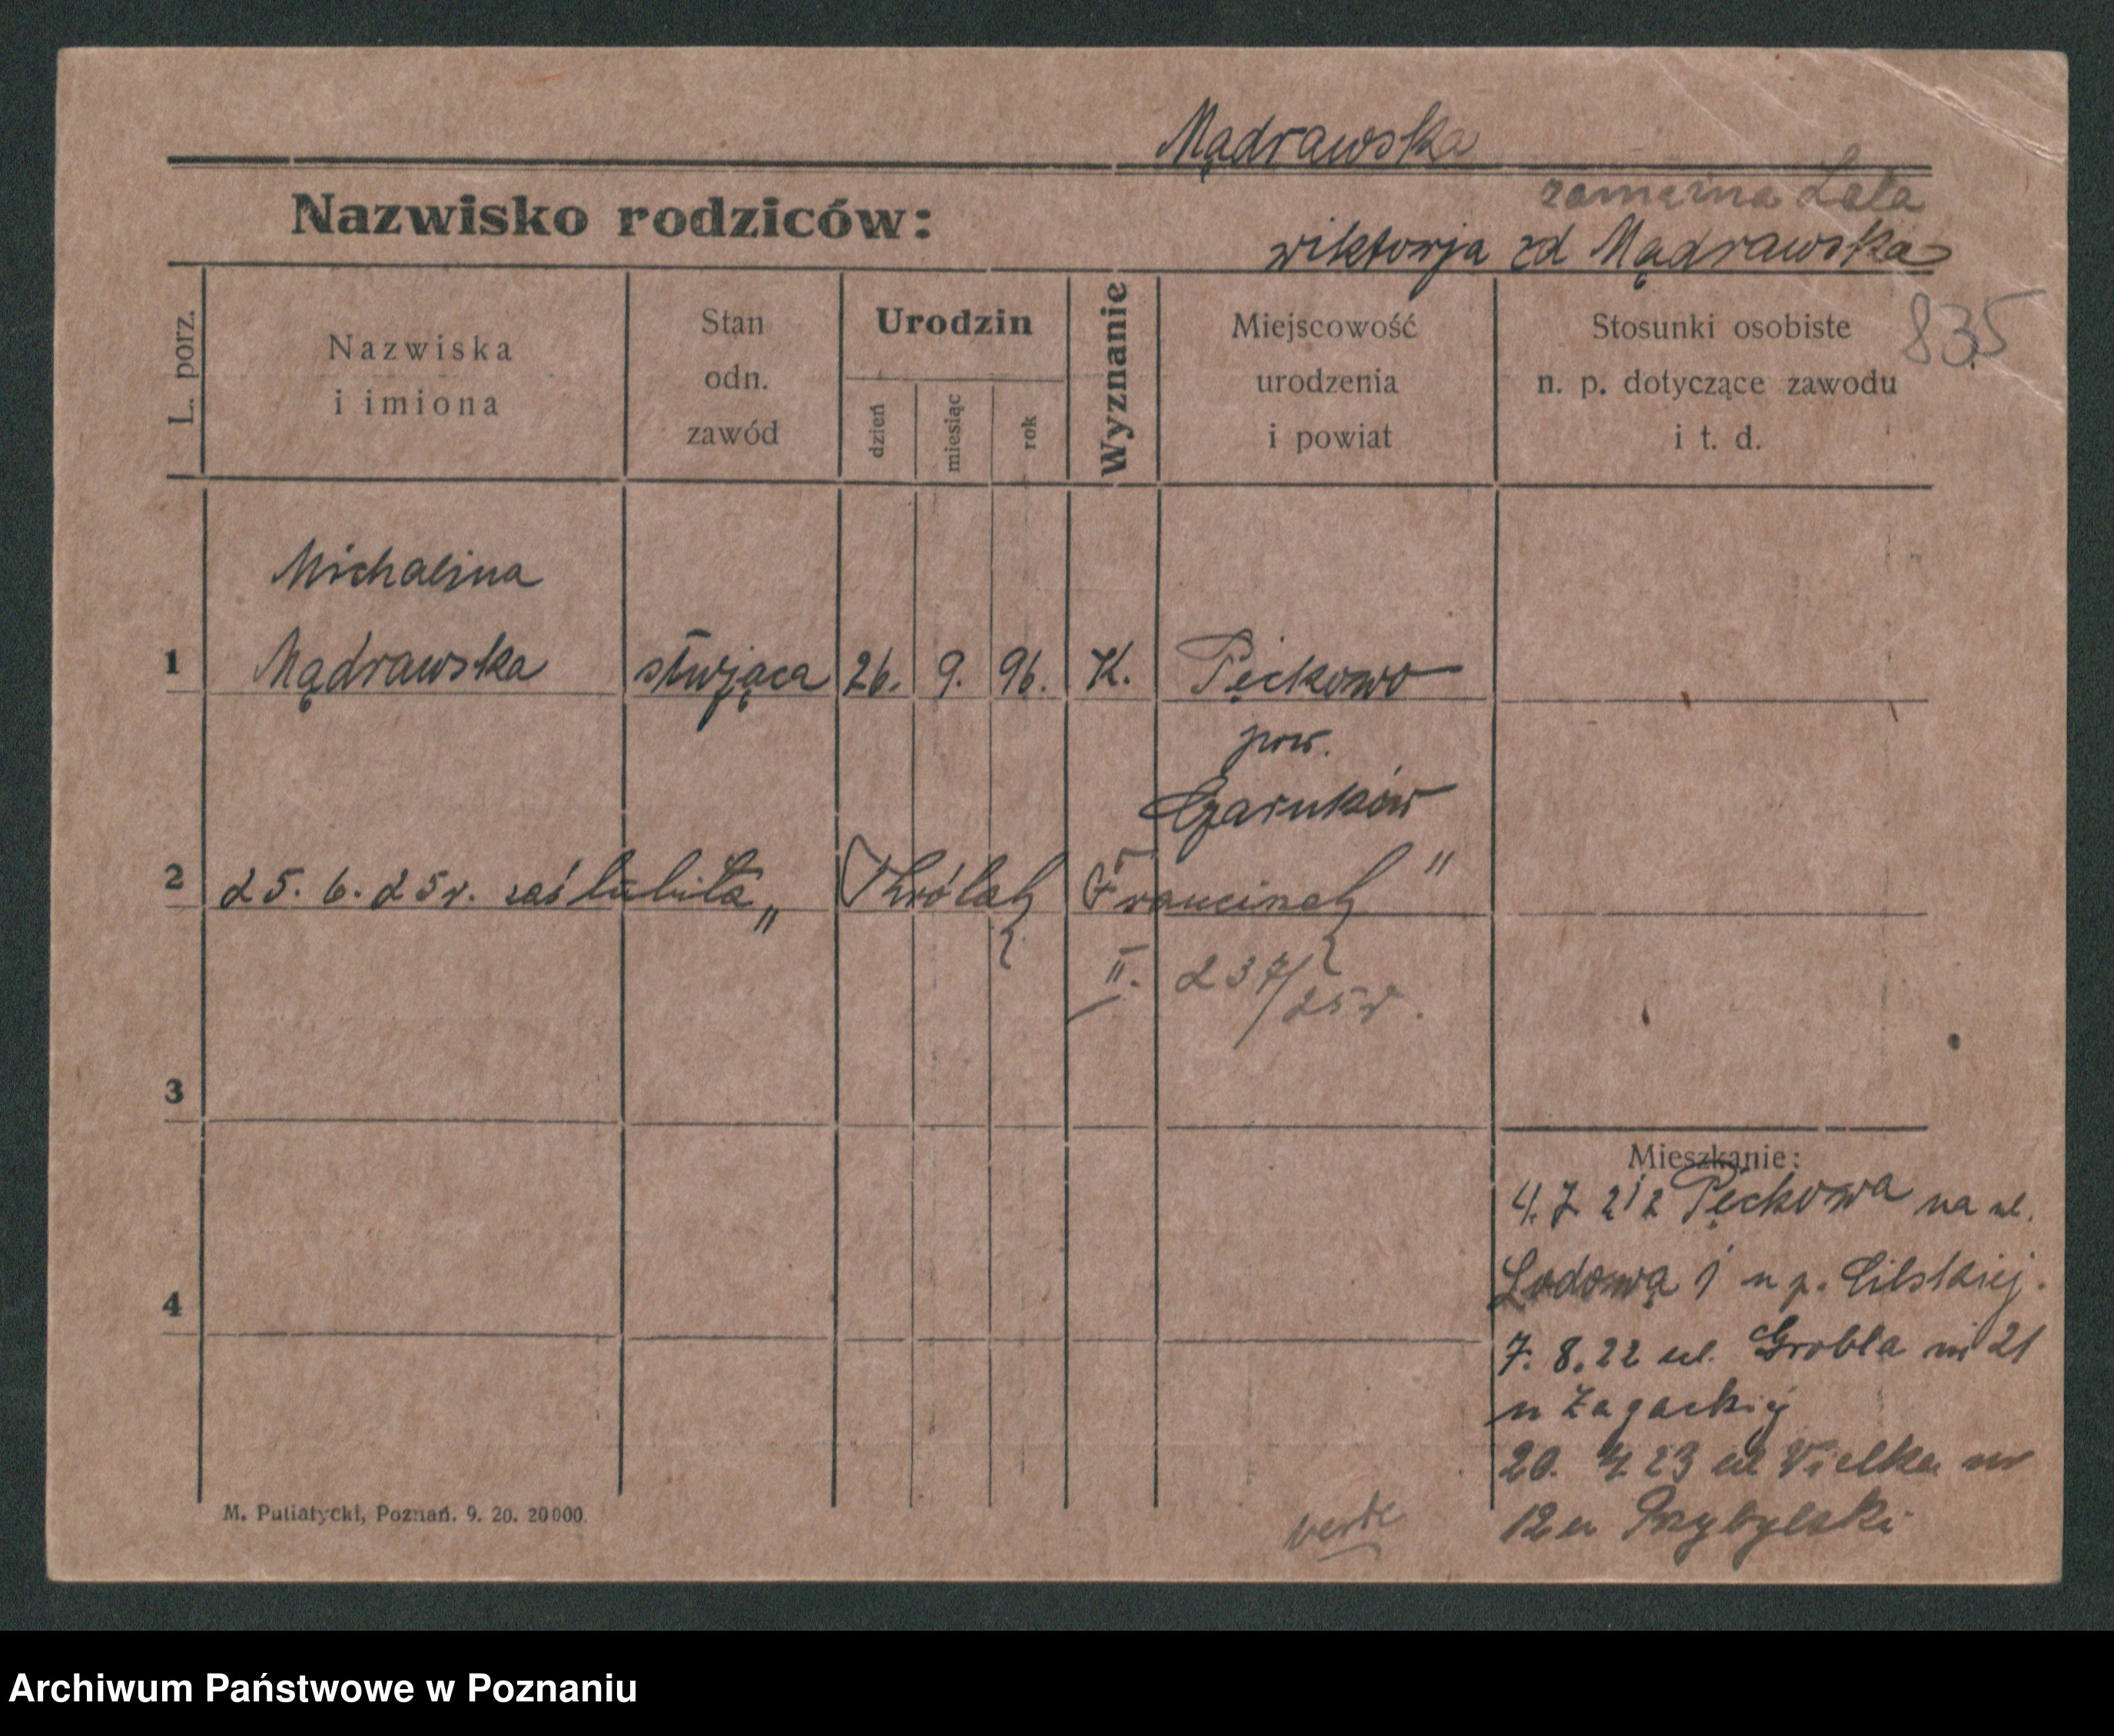 Mądrawska
zamężna Lala
Nazwisko rodziców:
wiktorja zd Mądrawska
835
L. porz.
Nazwiska
i imiona
Stan
odn.
zawód
Urodzin
dzień
miesiąc
rok
Wyznanie
Miejscowość
urodzenia
i powiat
Stosunki osobiste
n. p. dotyczące zawodu
i t. d.
Michalina
1 Mądrawska służąca 26. 9. 96. K. Pęckowo
pow.
Czarnków
2 25. 6. 25 r. zaślubiła „ Franciszek "
II. 237/25 r.
3
Mieszkanie:
4. 7. 212 Pęckowa na ul.
4 Lodową 1 u p. Cilskiej.
7. 8. 22 ul. Grobla nr 21
u Zagackiej
20. 4 23 ul Vielka nr
12 u Przybylski
M. Putiatycki, Poznań. 9. 20. 20000.
verte
Archiwum Państwowe w Poznaniu